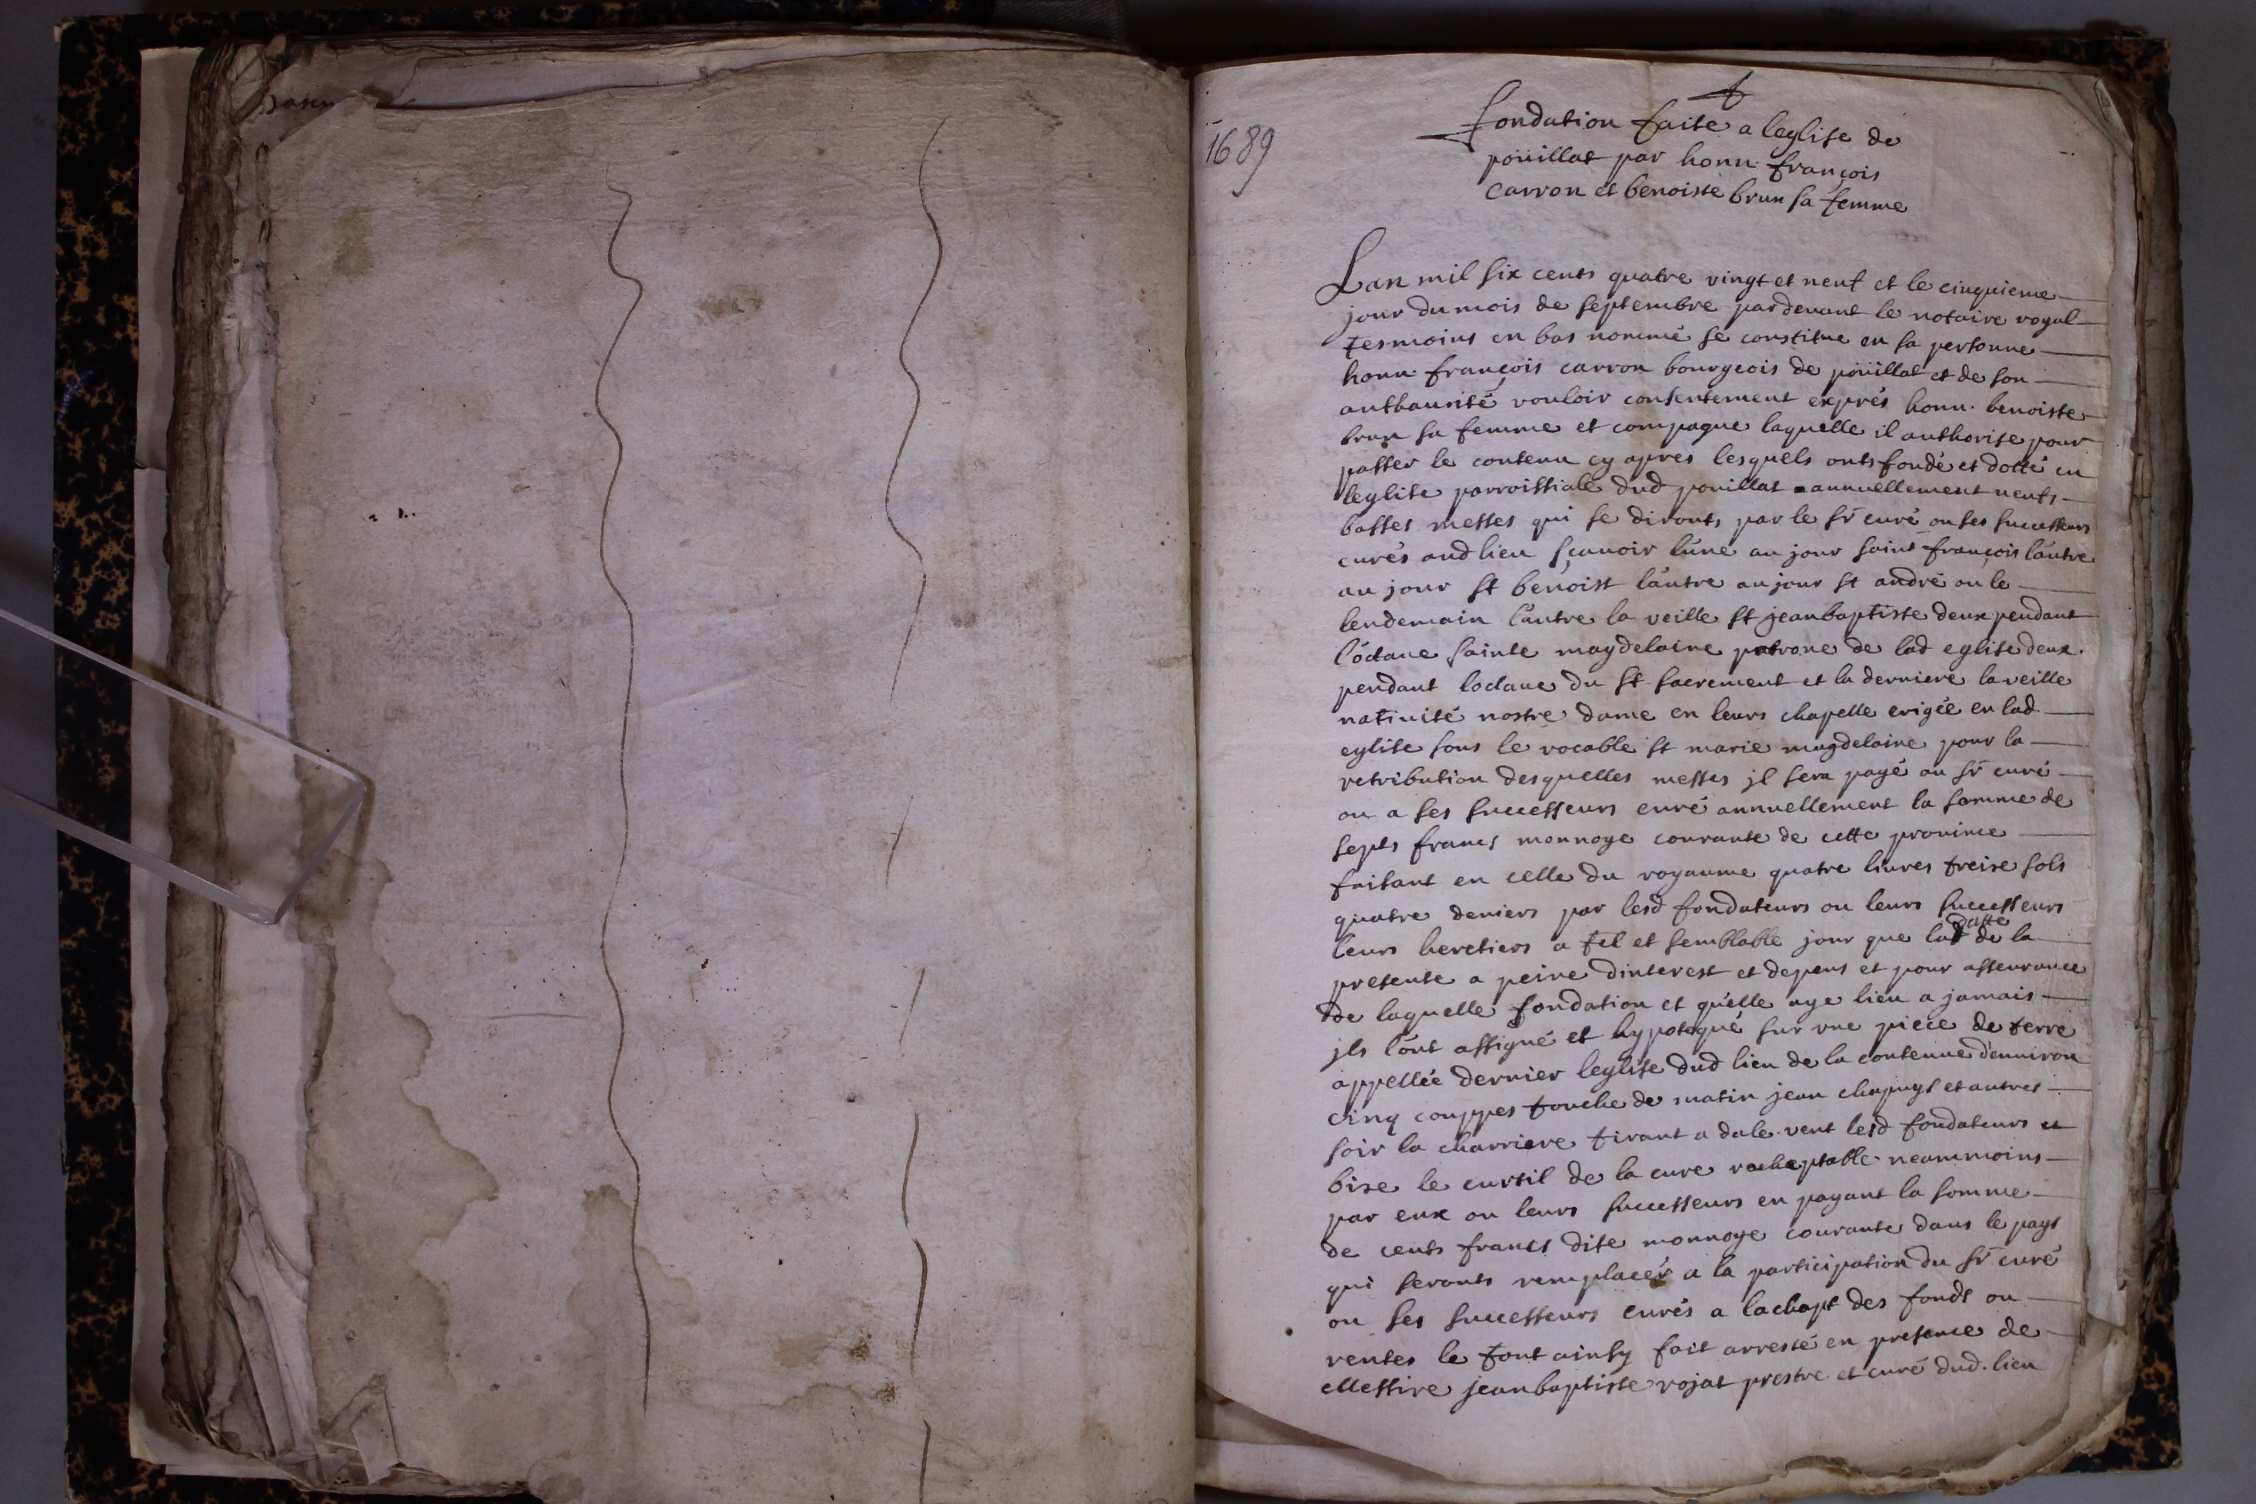 1689
fondation faite a leglise de
poüillat par honn. françois
carron et benoiste brun sa femme
Lan mil six cents quatre vingt et neuf et le cinquieme
jour du mois de septembre pardeuant le notaire royal
tesmoins en bas nommé se constitue en sa personne
honn. françois carron bourgeois de poüillat et de son
authaurité vouloir consentement exprés honn. benoiste
brun sa femme et compagne laquelle il authorise pour
passer le contenu cy apres lesquels onts fondé et dotté en
leglise parroissiale dud pouillat annuellement neufs
basses messes qui se dironts par le sr curé ou ses successeurs
curés aud lieu sçauoir lúne au jour saint françois láutre
au jour st benoist láutre au jour st andré ou le
lendemain láutre la veille st jean baptiste deux pendant
lóctaue sainte magdelaine patrone de lad eglise deux
pendant loctaue du st sacrement et la derniere la veille
natiuité nostre dame en leurs chapelle erigée en lad
eglise sous le vocable st marie magdelaine pour la
retribution desquelles messes jl sera payé au sr curé
ou a ses successeurs curé annuellement la somme de
septs francs monnoye courante de cette prouince
faisant en celle du royaume quatre liures treise sols
quatre deniers par lesd fondateurs ou leurs successeurs
leurs heretiers a tel et semblable jour que lad datte de la
presente a peine dinterest et depens et pour asseurance
de laquelle fondation et quélle aye lieu a jamais
jls lónt assigné et hypotequé sur vne piece de terre
appellée dernier leglise dud lieu de la contenue dénuiron
cinq couppes touche de matin jean chapuys et autres
soir la charriere tirant a dale vent lesd fondateurs et
bise le curtil de la cure racheptable neammoins
par eux ou leurs successeurs en payant la somme
de cents francs dite monnoye courante dans le pays
qui seronts remplacés a la participation du sr curé
ou ses successeurs curés a lachapt des fonds ou
rentes le tout ainsy fait arresté en presence de
Messire jean baptiste rojat prestre et curé dud. lieu